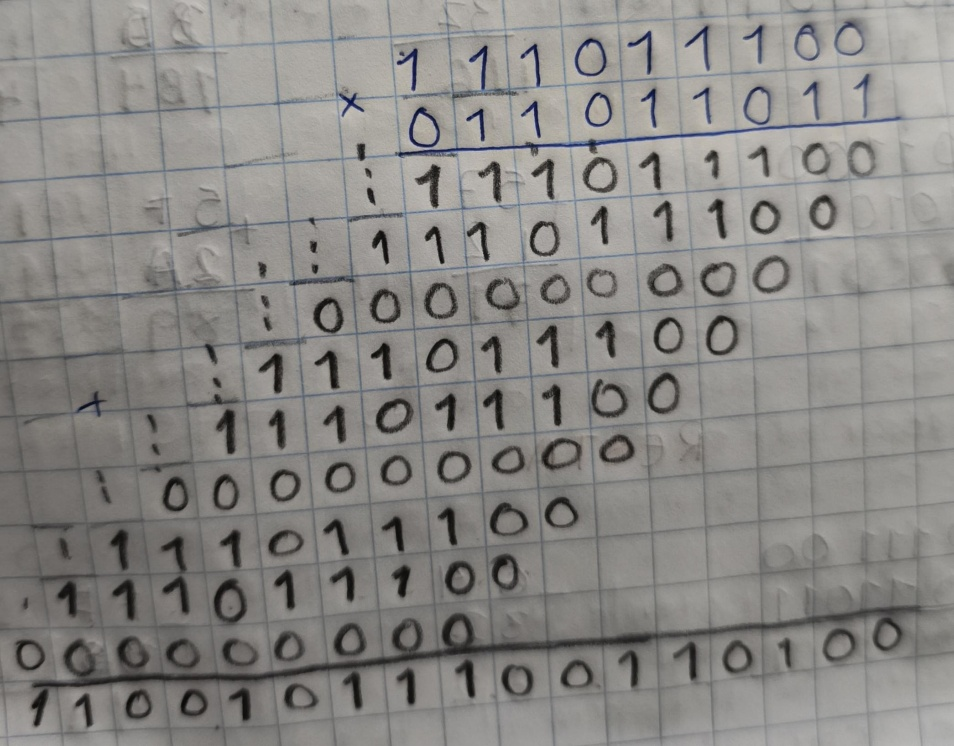 111011100
×
011011011
111011100
111011100
000000000
111011100
+
111011100
000000000
111011100
111011100
000000000
11001011100110100